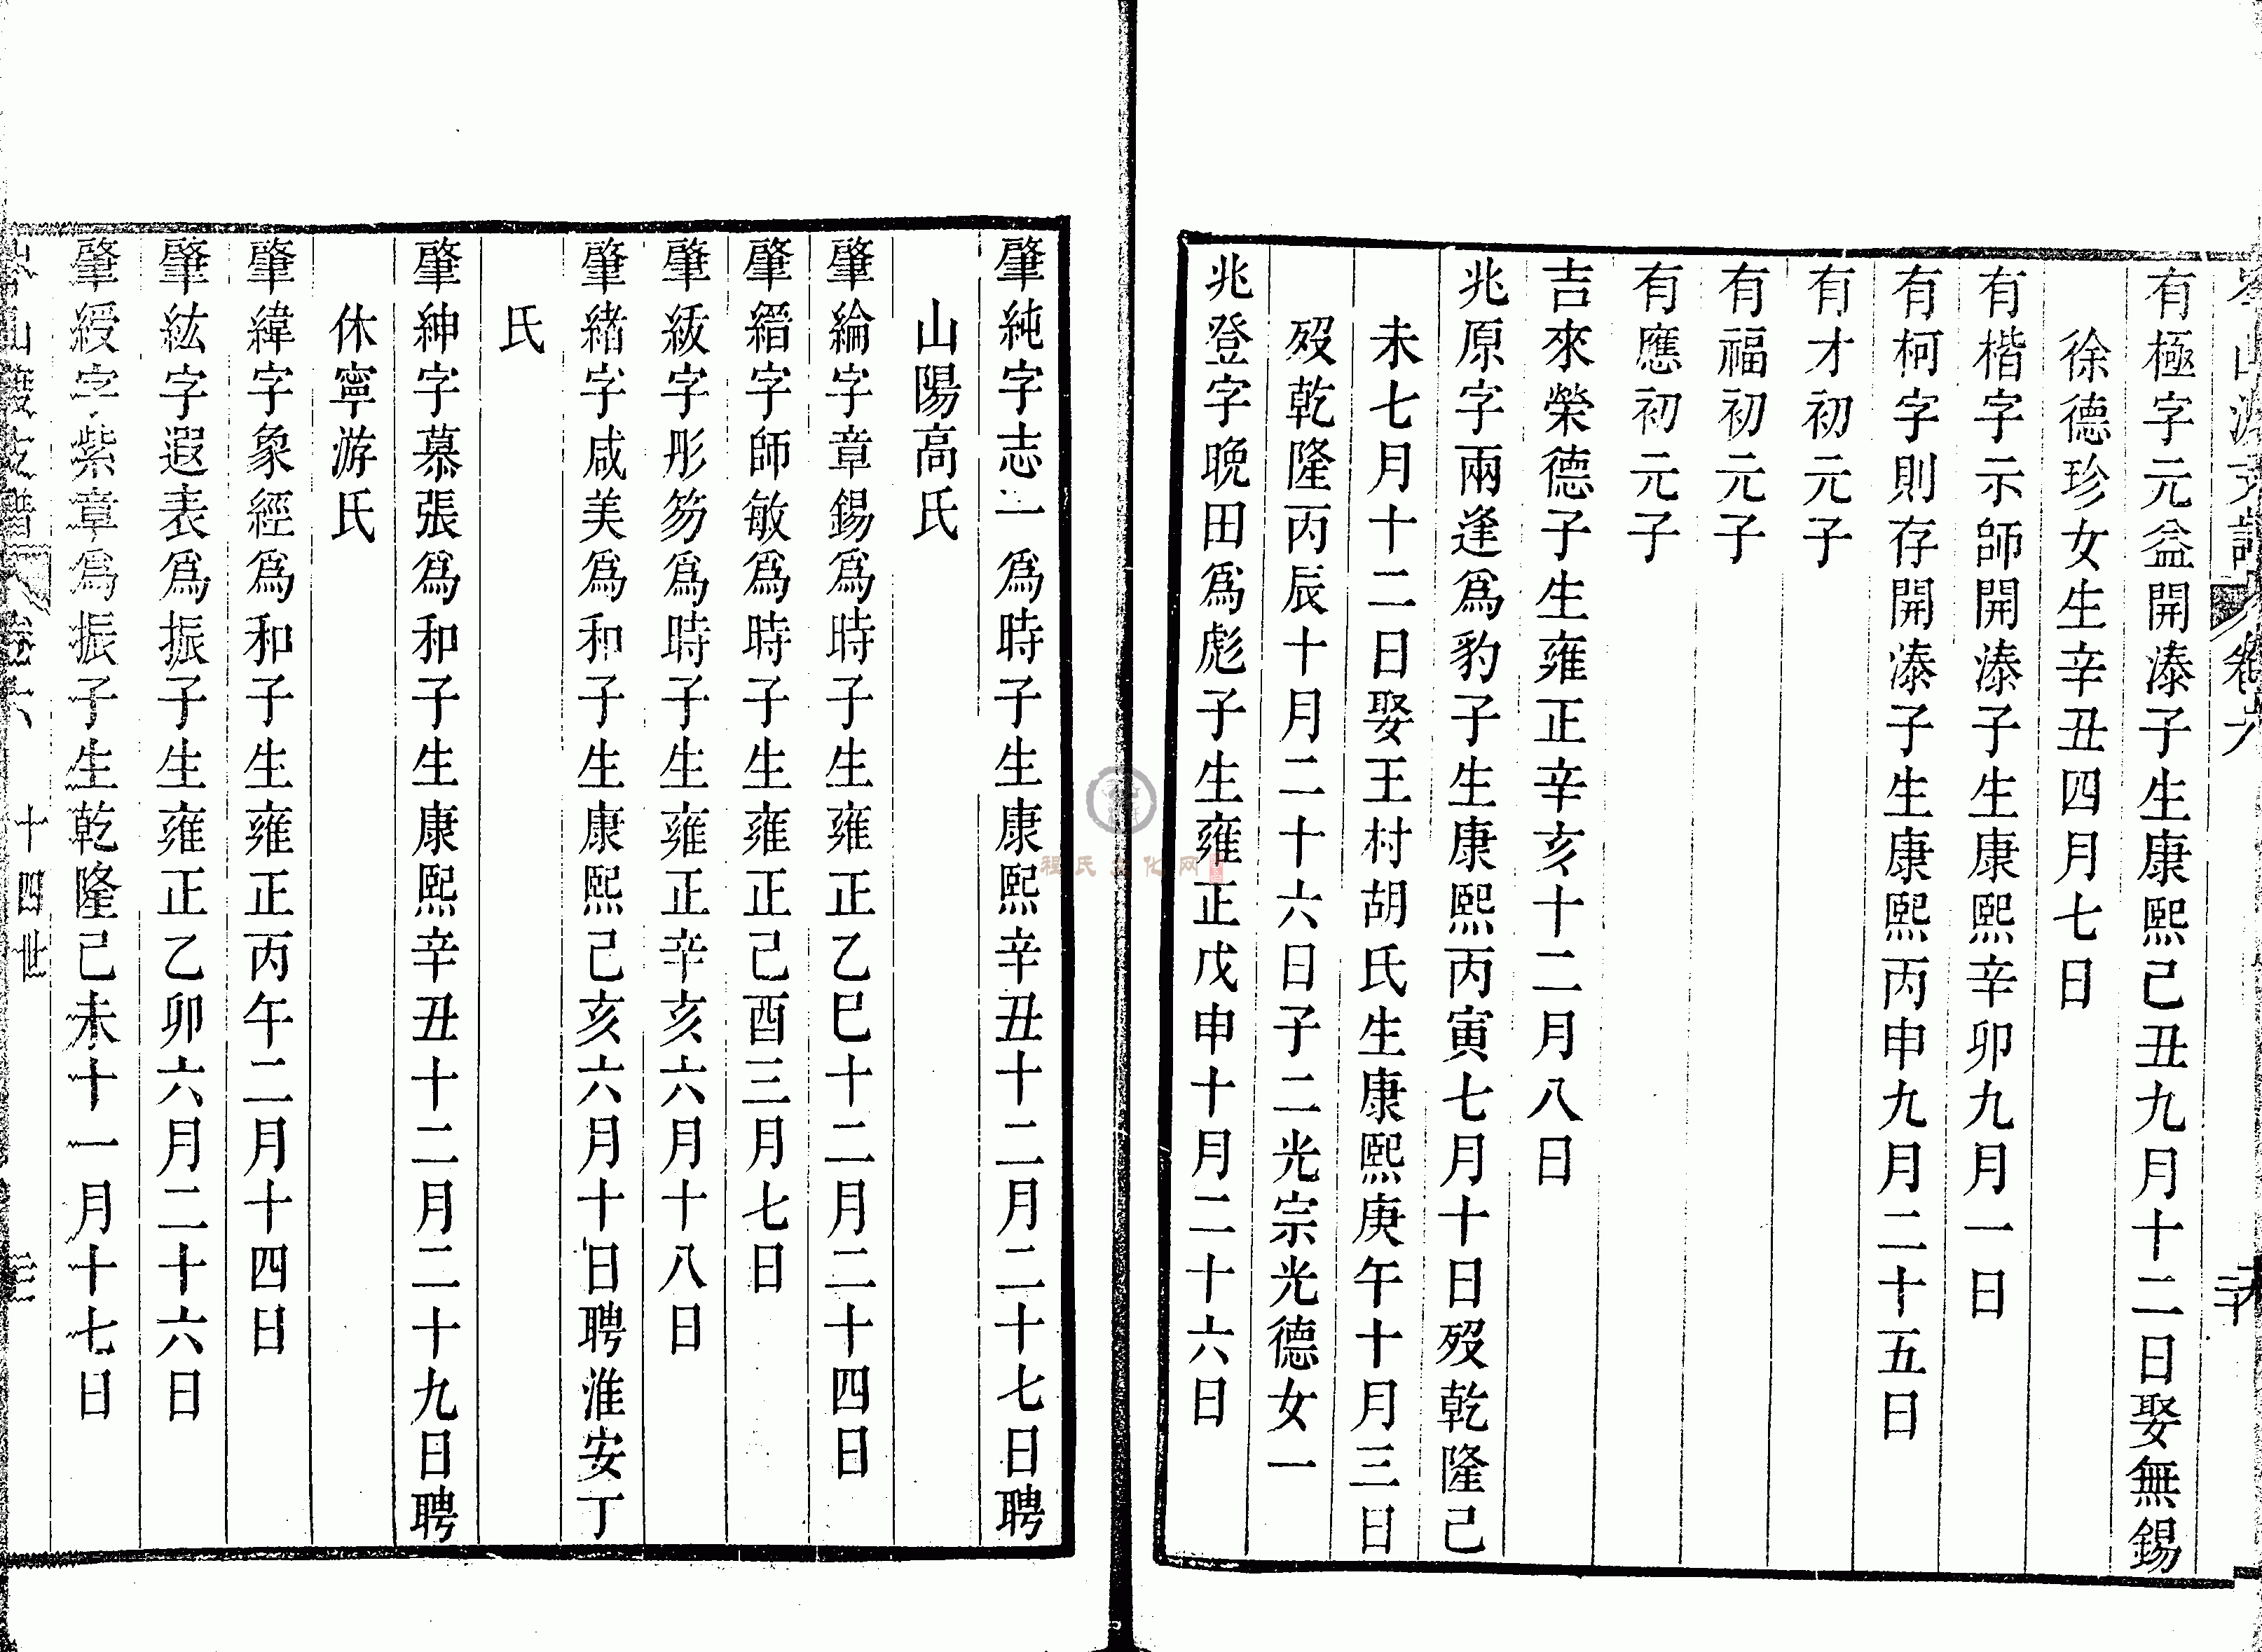 岑山渡支譜 卷六
有極字元益開漆子生康熙己丑九月十二日娶無錫
徐德珍女生辛丑四月七日
有楷字示師開漆子生康熙辛卯九月一日
有柯字則存開漆子生康熙丙申九月二十五日
有才初元子
有福初元子
有應初元子
吉來榮德子生雍正辛亥十二月八日
兆原字兩逢爲豹子生康熙丙寅七月十日歿乾隆己
未七月十二日娶王村胡氏生康熙庚午十月三日
歿乾隆丙辰十月二十六日子二光宗光德女一
兆登字晚田爲彪子生雍正戊申十月二十六日
肇純字志一爲時子生康熙辛丑十二月二十七日聘
山陽高氏
肇綸字章錫爲時子生雍正乙巳十二月二十四日
肇縉字師敏爲時子生雍正己酉三月七日
肇紱字彤笏爲時子生雍正辛亥六月十八日
肇緒字咸美爲和子生康熙己亥六月十日聘淮安丁
氏
肇紳字慕張爲和子生康熙辛丑十二月二十九日聘
休寧游氏
肇緯字象經爲和子生雍正丙午二月十四日
肇紘字遐表爲振子生雍正乙卯六月二十六日
肇綬字紫章爲振子生乾隆己未十一月十七日
山渡支譜 卷六 十四世
程氏文化网